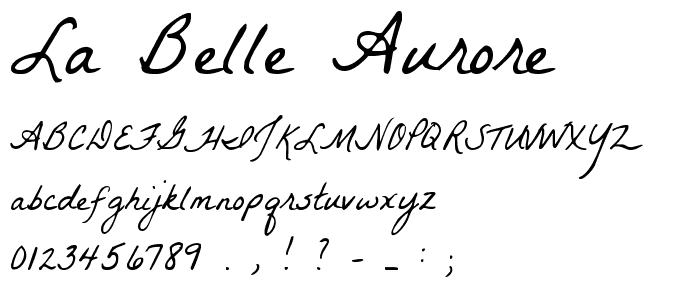 La Belle Aurore
ABCDEFGHIJKLMNOPQRSTUVWXYZ
abcdefghijklmnopqrstuvwxyz
0123456789 . , ! ? - _ : ;